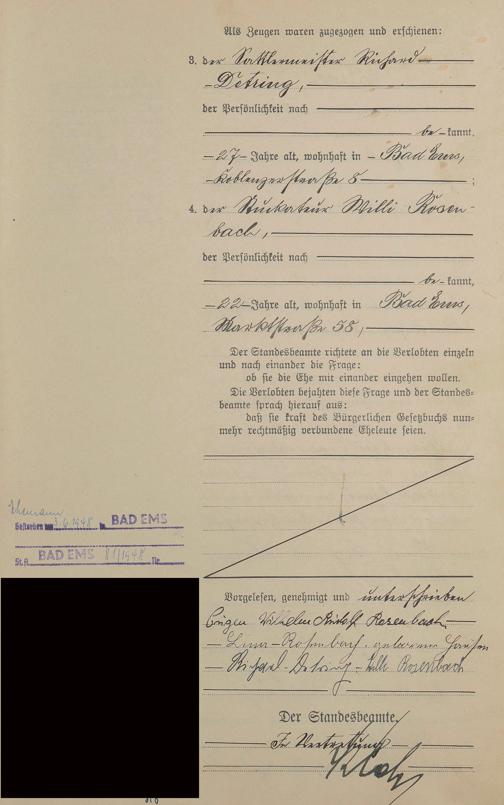 Als Zeugen waren zugezogen und erschienen:
3. der Sattlermeister Richard
Detring,
der Persönlichkeit nach
be-kannt,
27 Jahre alt, wohnhaft in Bad Ems,
Koblenzerstraße 8 ;
4. der Stuckateur Willi Rosen-
bach,
der Persönlichkeit nach
be-kannt,
22 Jahre alt, wohnhaft in Bad Ems,
Marktstraße 58,
Der Standesbeamte richtete an die Verlobten einzeln
und nach einander die Frage:
ob sie die Ehe mit einander eingehen wollen.
Die Verlobten bejahten diese Frage und der Standes-
beamte sprach hierauf aus:
daß sie kraft des Bürgerlichen Gesetzbuchs nun-
mehr rechtmäßig verbundene Eheleute seien.
Ehemann
Gestorben am 3.6.1948 in BAD EMS
St.A. BAD EMS 81/1948 Nr.
Vorgelesen, genehmigt und unterschrieben
Eugen Wilhelm Rudolf Rosenbach
Lina Rosenbach geborene
Richard Detring Willi Rosenbach
Der Standesbeamte.
In Vertretung